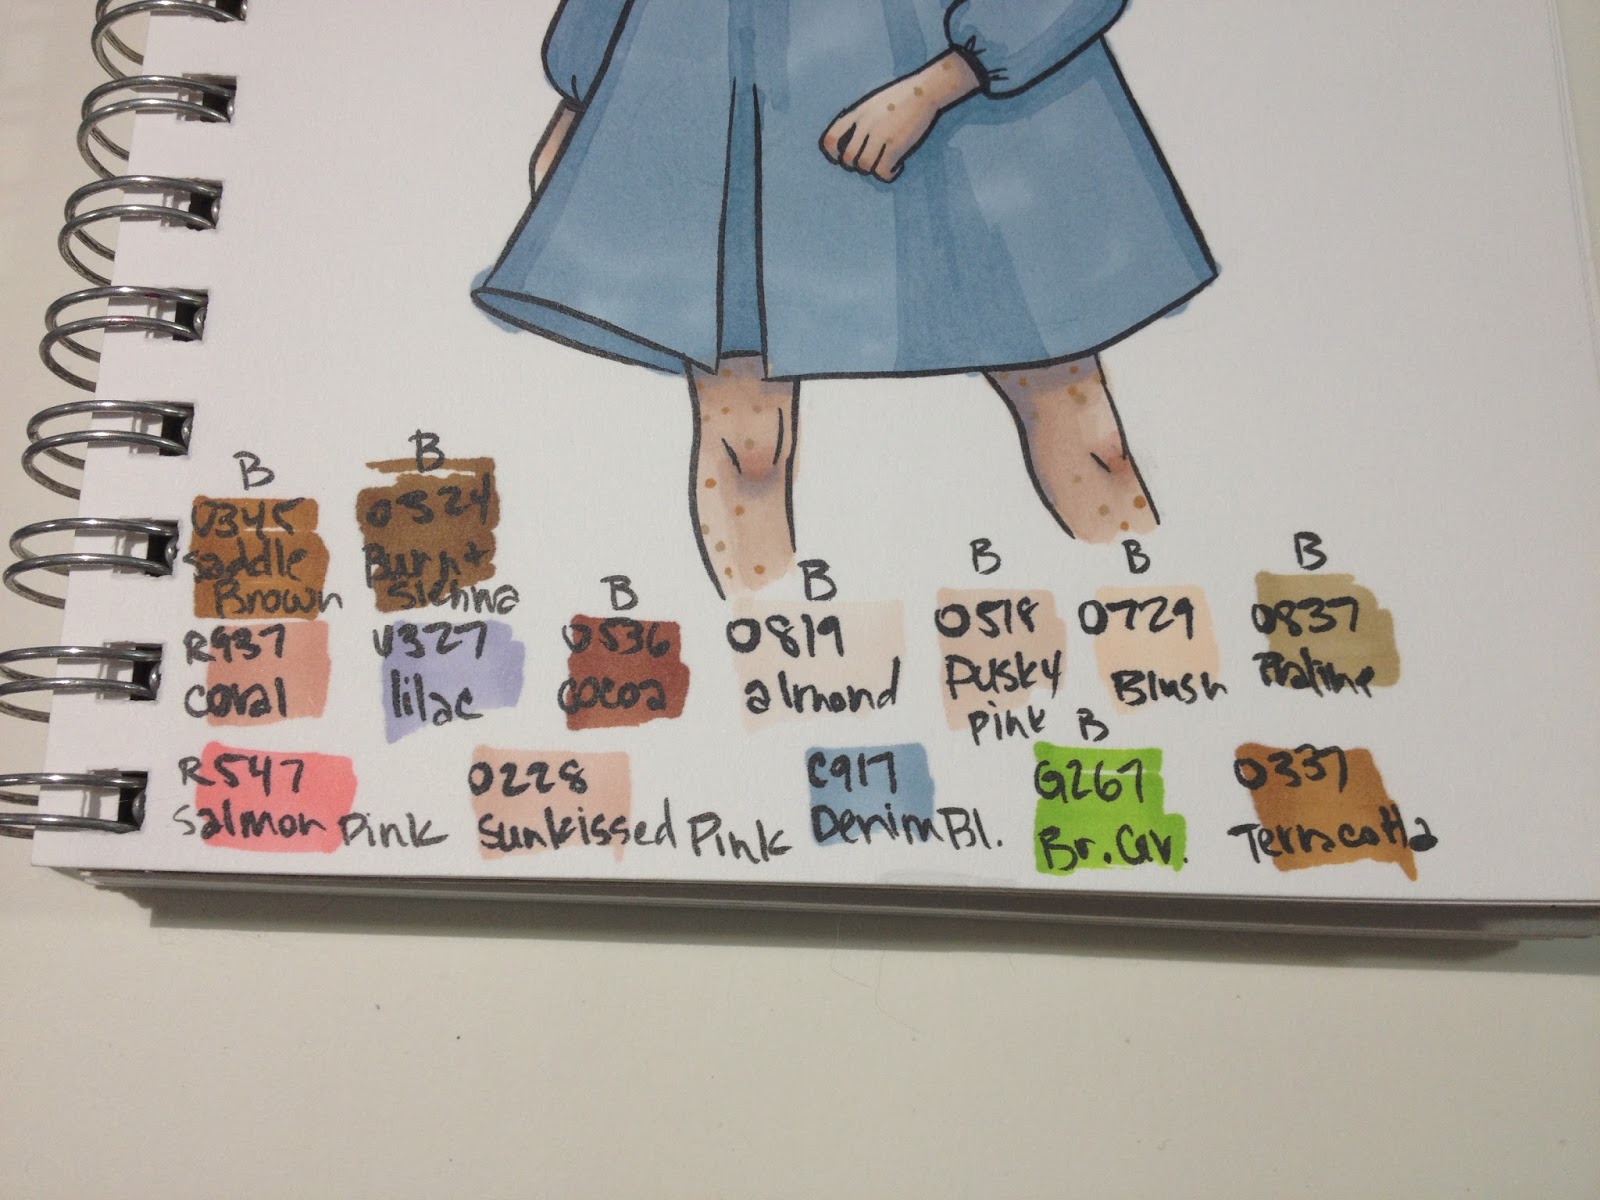 B
B
0345
Saddle
Brown
0324
Burnt
Sienna
R937
coral
V327
lilac
B
0536
cocoa
B
0819
almond
B
0518
Dusky
pink
B
0729
Blush
B
0837
Praline
R547
Salmon Pink
0228
Sunkissed Pink
C917
Denim Bl.
B
G267
Br. Gr.
0337
Terracotta